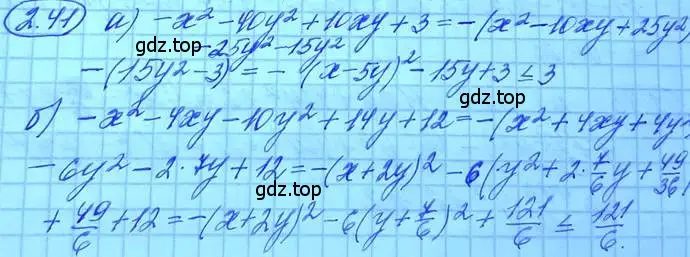 2.41 а) -x² - 40y² + 10xy + 3 = -(x² - 10xy + 25y²)
gdz.top
-25y² -15y²
-(15y² - 3) = -(x-5y)² - 15y + 3 ≤ 3
gdz.top
б) -x² - 4xy - 10y² + 14y + 12 = -(x² + 4xy + 4y²
- 6y² - 2·7y + 12 = -(x+2y)² - 6(y² + 2·7/6y + 49/36)
gdz.top
+ 49/6 + 12 = -(x+2y)² - 6(y + 7/6)² + 121/6 ≤ 121/6.